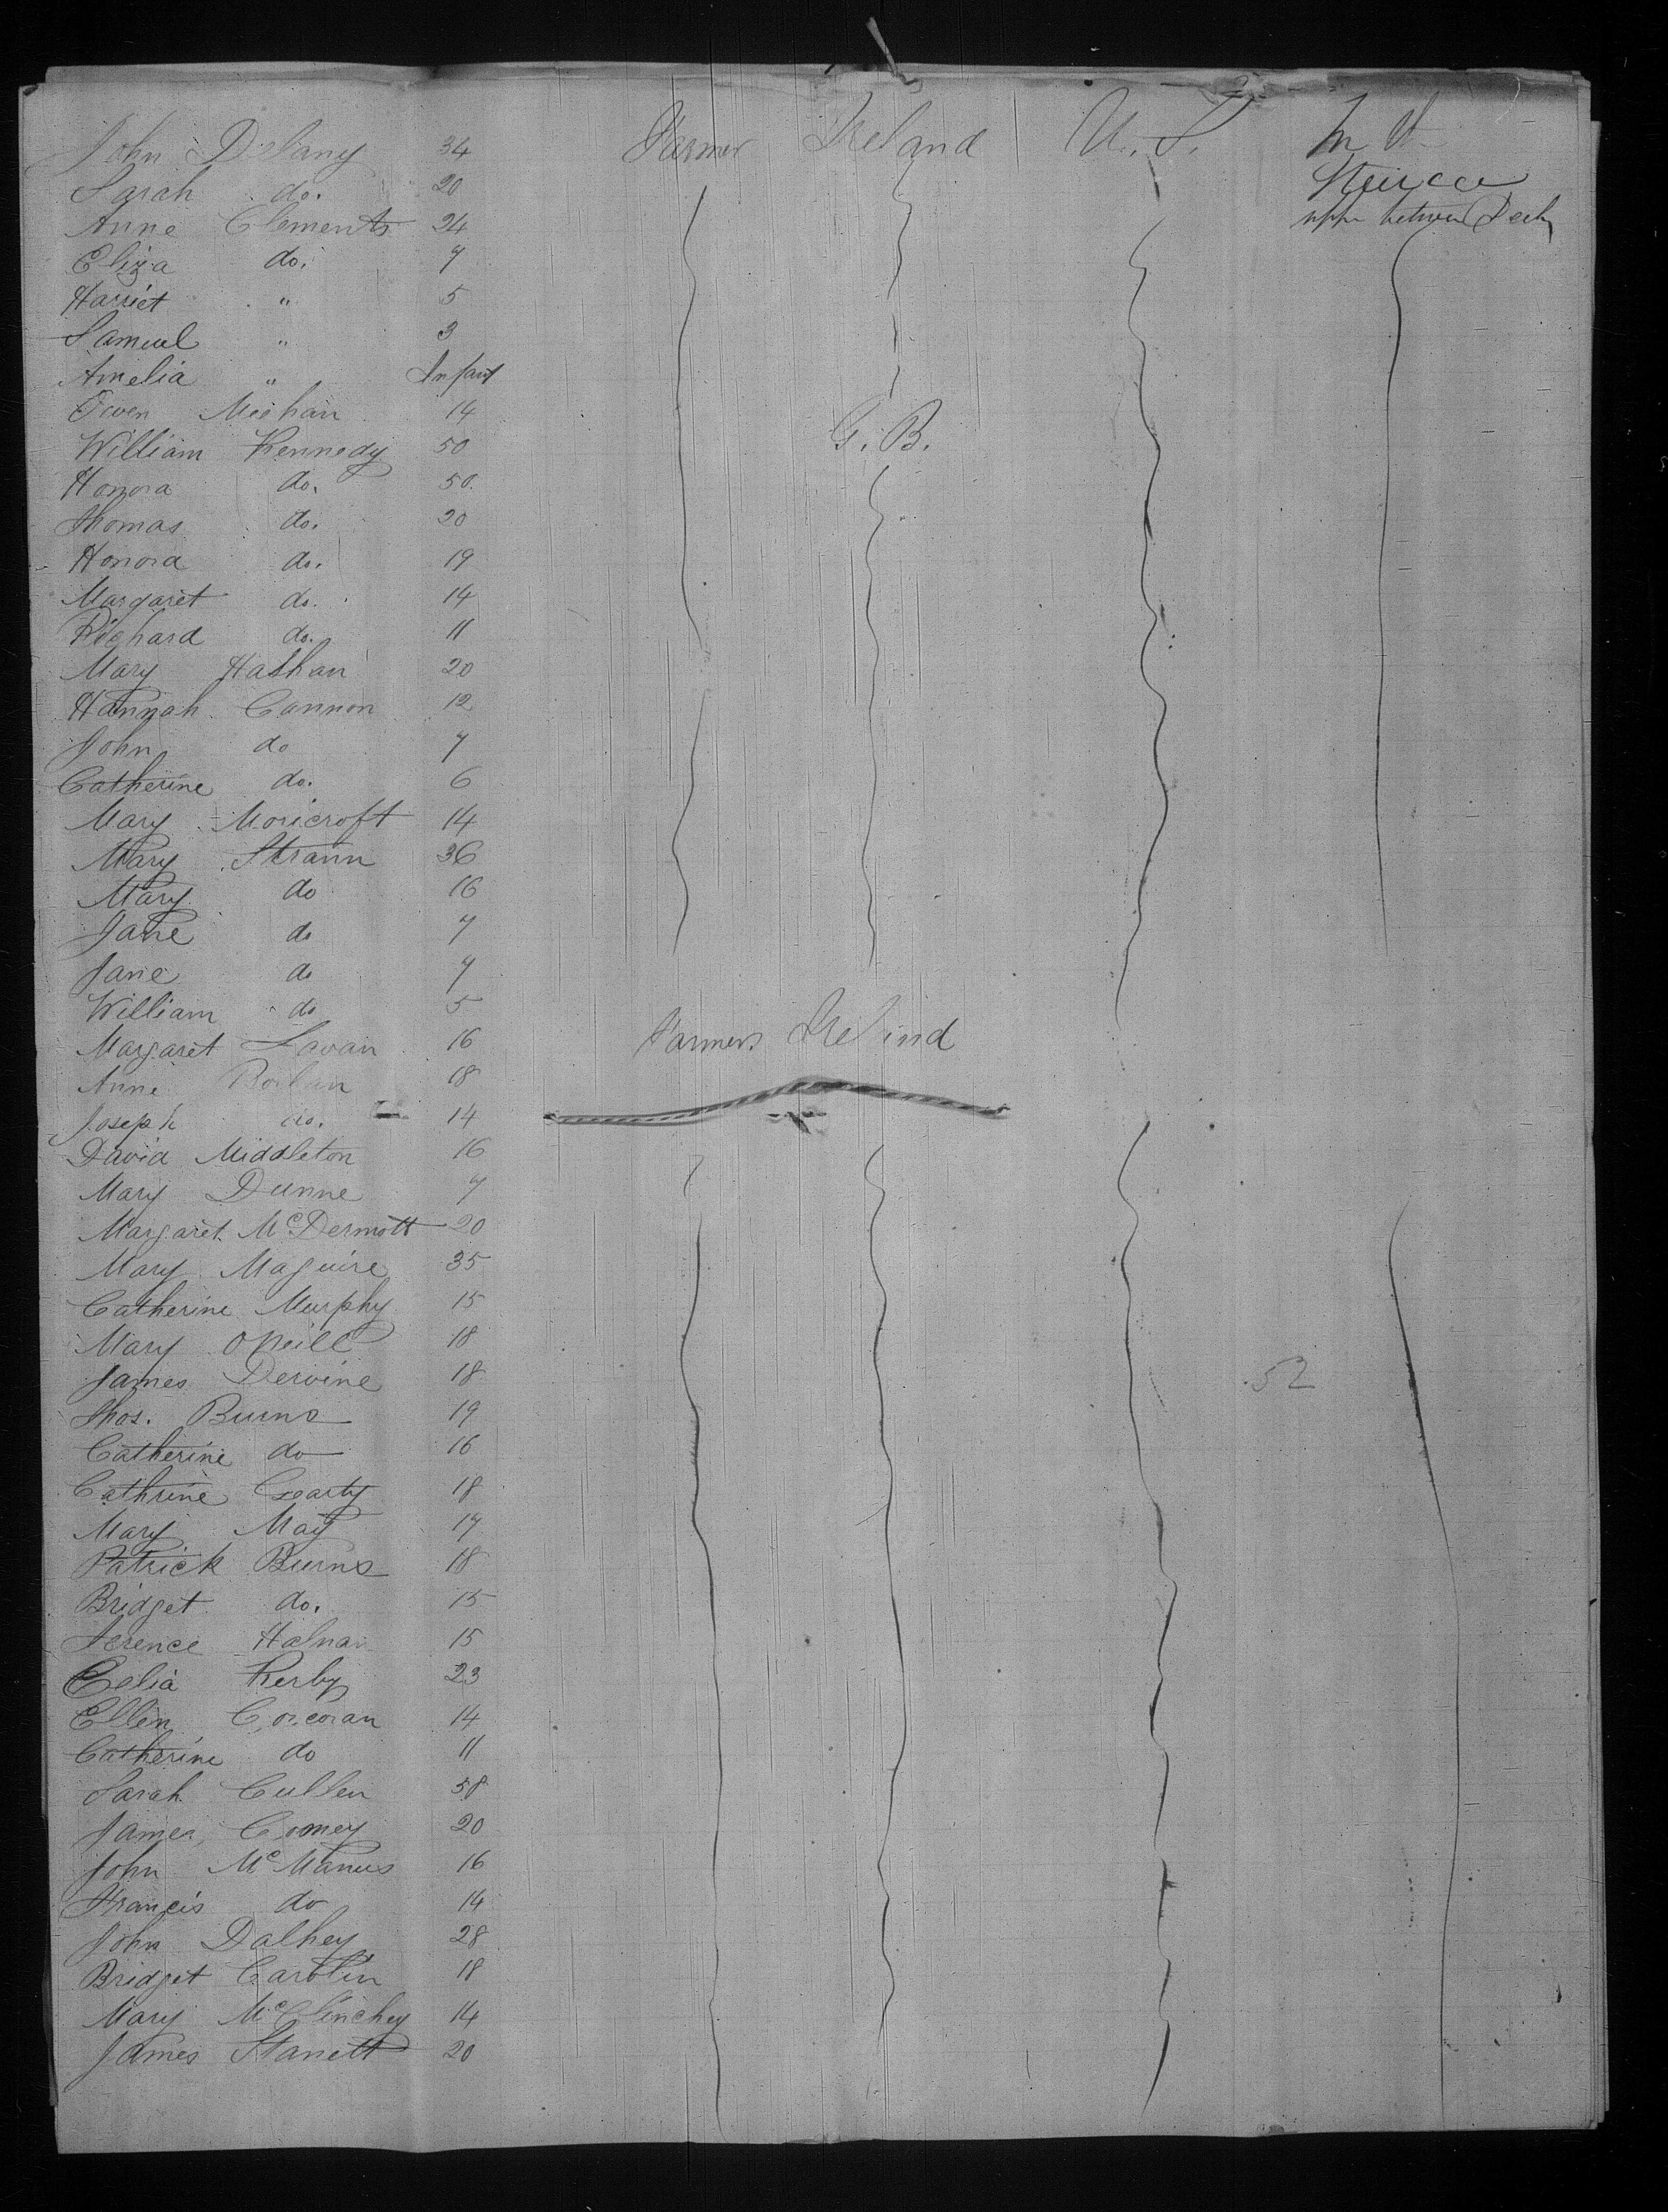 John Delany 34 Farmer Ireland U. S. In the
Sarah do. 20 Steerage
Anne Clements 24 upper between Deck
Eliza do. 7
Harriet " 5
Samuel " 3
Amelia " Infant
Owen Meehan 14 G. B.
William Kennedy 50
Honora do. 50
Thomas do. 20
Honora do. 19
Margaret do. 14
Richard do. 11
Mary Hathan 20
Hannah Cannon 12
John do 7
Catherine do. 6
Mary Moricroft 14
Mary Strann 36
Mary do 16
Jane do 7
Jane do 7
William do 5
Margaret Lavan 16 Farmers Ireland
Anne 18
Joseph do. 14
David Middleton 16
Mary Dunne 7
Margaret McDermott 20
Mary Maguire 35
Catherine Murphy 15
Mary ONeill 18
James Dervine 18 52
Thos. Burns 19
Catherine do 16
Cathrine Gearty 18
Mary May 17
Patrick Burns 18
Bridget do. 15
Terence 15
Celia Kerby 23
Ellen Corcoran 14
Catherine do 11
Sarah Cullen 58
James Comey 20
John McManus 16
Francis do 14
John Dalhey 28
Bridget Carolin 18
Mary McClinchey 14
James Stanett 20